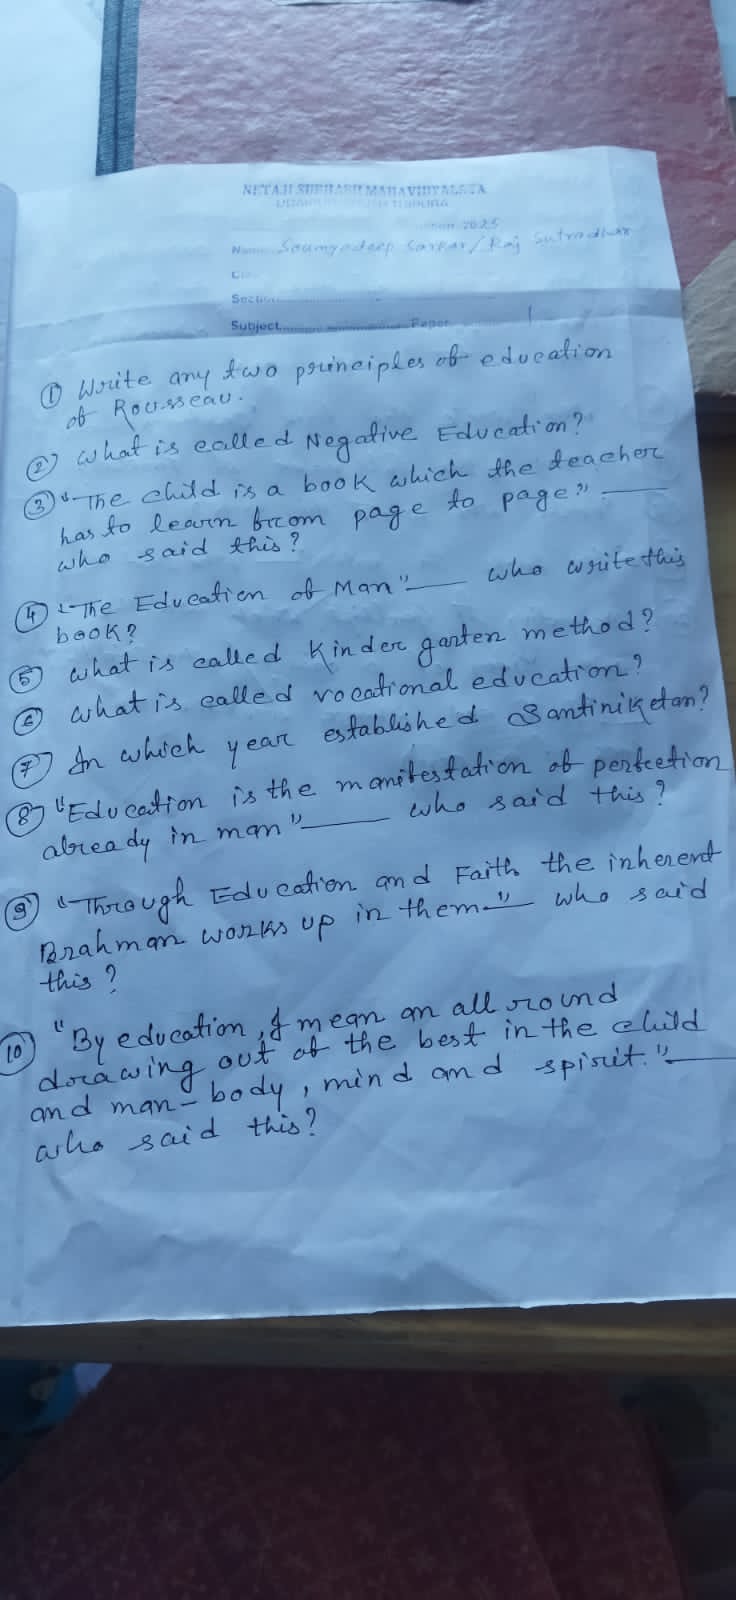 NETAJI SUBHASH MAHAVIDYALAYA
2025
Name Soumyadeep Sarkar/Raj Sutradhar
Section
Subject Paper 1
① Write any two principles of education
of Rousseau.
② What is called Negative Education?
③ "The child is a book which the teacher
has to learn from page to page"
who said this?
④ "The Education of Man" who write this
book?
⑤ what is called Kinder garten method?
⑥ what is called vocational education?
⑦ In which year established Santiniketan?
⑧ "Education is the manifestation of perfection
already in man" who said this?
⑨ "Through Education and Faith the inherent
Brahman works up in them" who said
this?
⑩ "By education, I mean an all round
drawing out of the best in the child
and man-body, mind and spirit."
who said this?